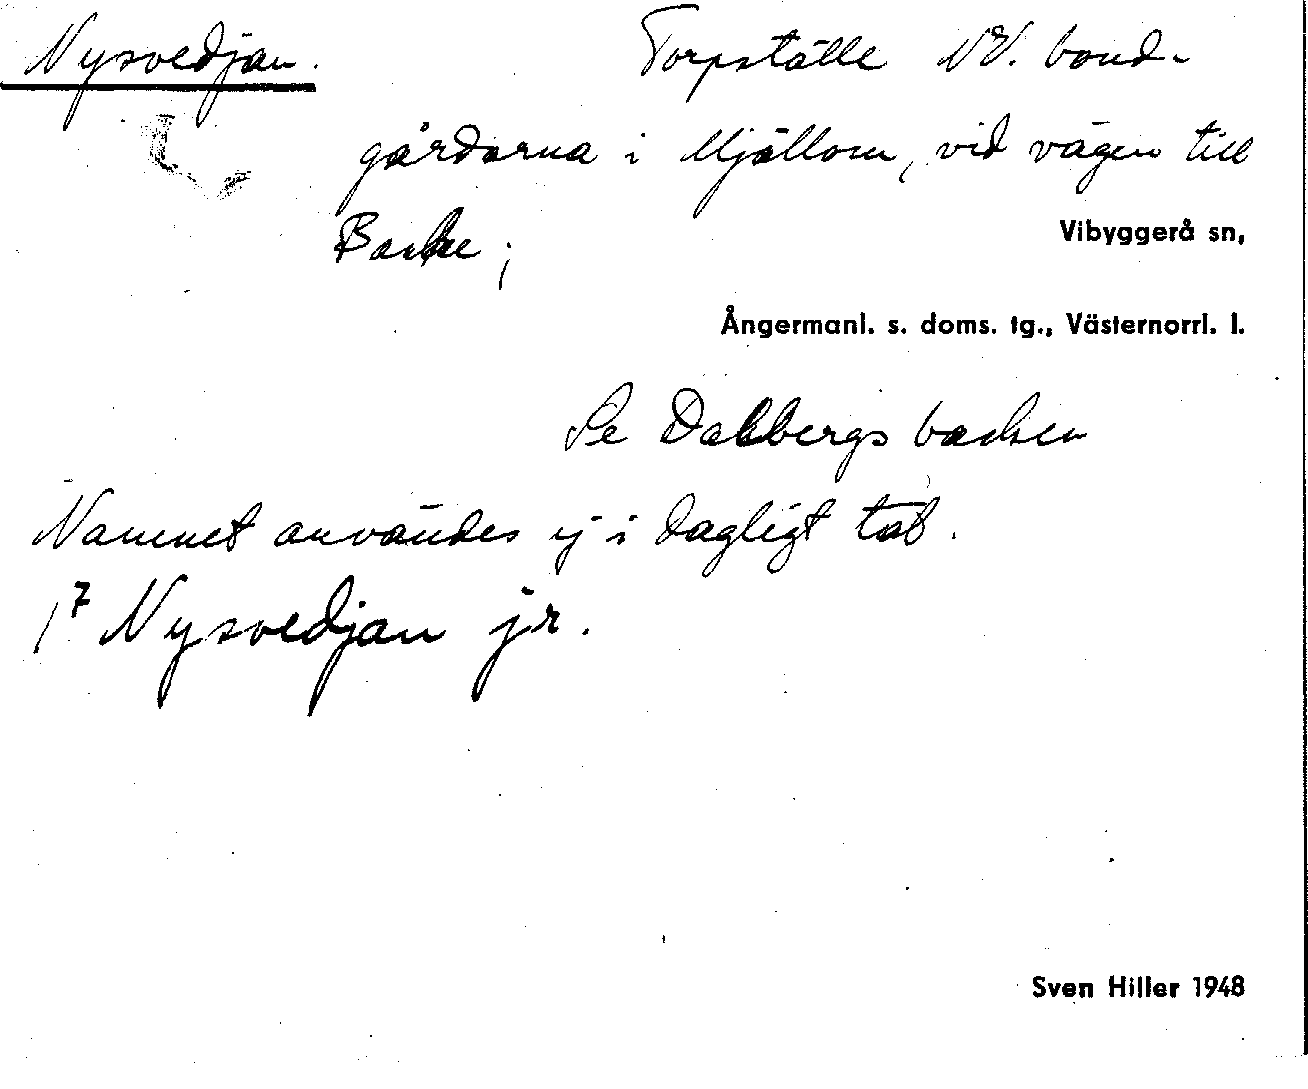 Nysvedjan. Torpställe NV. bond-
gårdarna i Mjällom, vid vägen till
Backe;
Vibyggerå sn,
Ångermanl. s. doms. tg., Västernorrl. l.
Se Dalbergsbacken
Namnet användes ej i dagligt tal.
Nysvedjan jr.
Sven Hiller 1948